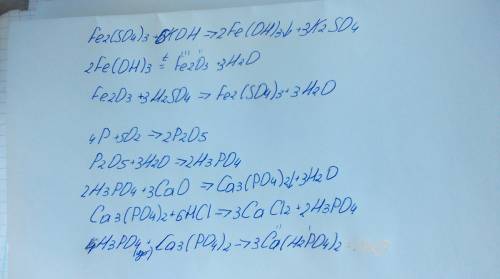 Fe2(SO4)3+6KOH→2Fe(OH)3↓+3K2SO4
2Fe(OH)3 t= Fe2O3+3H2O
Fe2O3+3H2SO4→Fe2(SO4)3+3H2O
4P+5O2→2P2O5
P2O5+3H2O→2H3PO4
2H3PO4+3CaO→Ca3(PO4)2↓+3H2O
Ca3(PO4)2+6HCl→3CaCl2+2H3PO4
4H3PO4+Ca3(PO4)2→3Ca(H2PO4)2